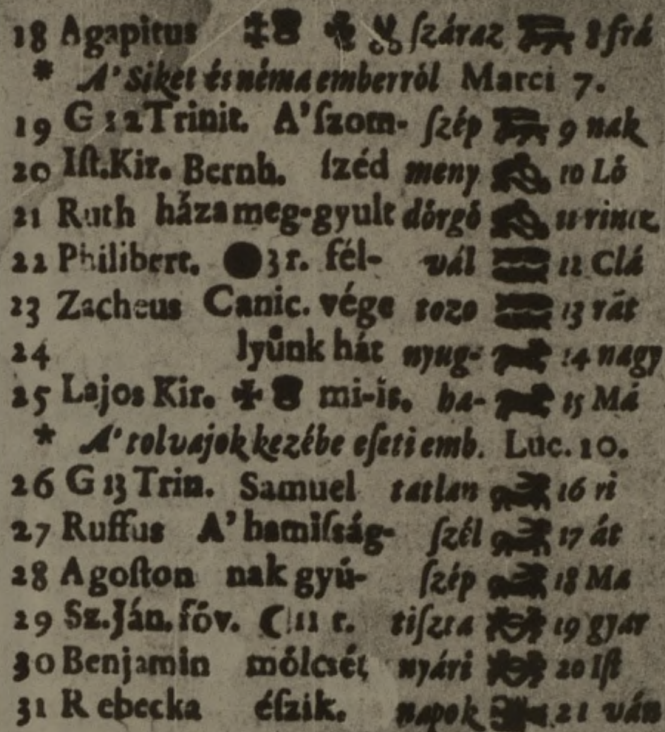 18 Agapitus ſzáraz 8 frá
* A' Siket és néma emberről Marci 7.
19 G 12 Trinit. A' ſzom- ſzép 9 nak
20 Iſt. Kir. Bernh. ſzéd meny 10 Lő
21 Ruth háza meg-gyult dőrgő 11 rincz
22 Philibert. ● 3 r. fél- vál 12 Clá
23 Zacheus Canic. vége tozo 13 rát
24 lyűnk hát nyug- 14 nagy
25 Lajos Kir. mi-is. ha- 15 Má
* A' tolvajok kezébe eſett emb. Luc. 10.
26 G 13 Trin. Samuel tatlan 16 ri
27 Ruffus A' hamiſság- ſzél 17 át
28 Agoſton nak gyú- ſzép 18 Ma
29 Sz. Ján. főv. ☾ 11 r. tiſzta 19 gyar
30 Benjamin mőlcsét nyári 20 Iſt
31 Rebecka éſzik. napok 21 ván